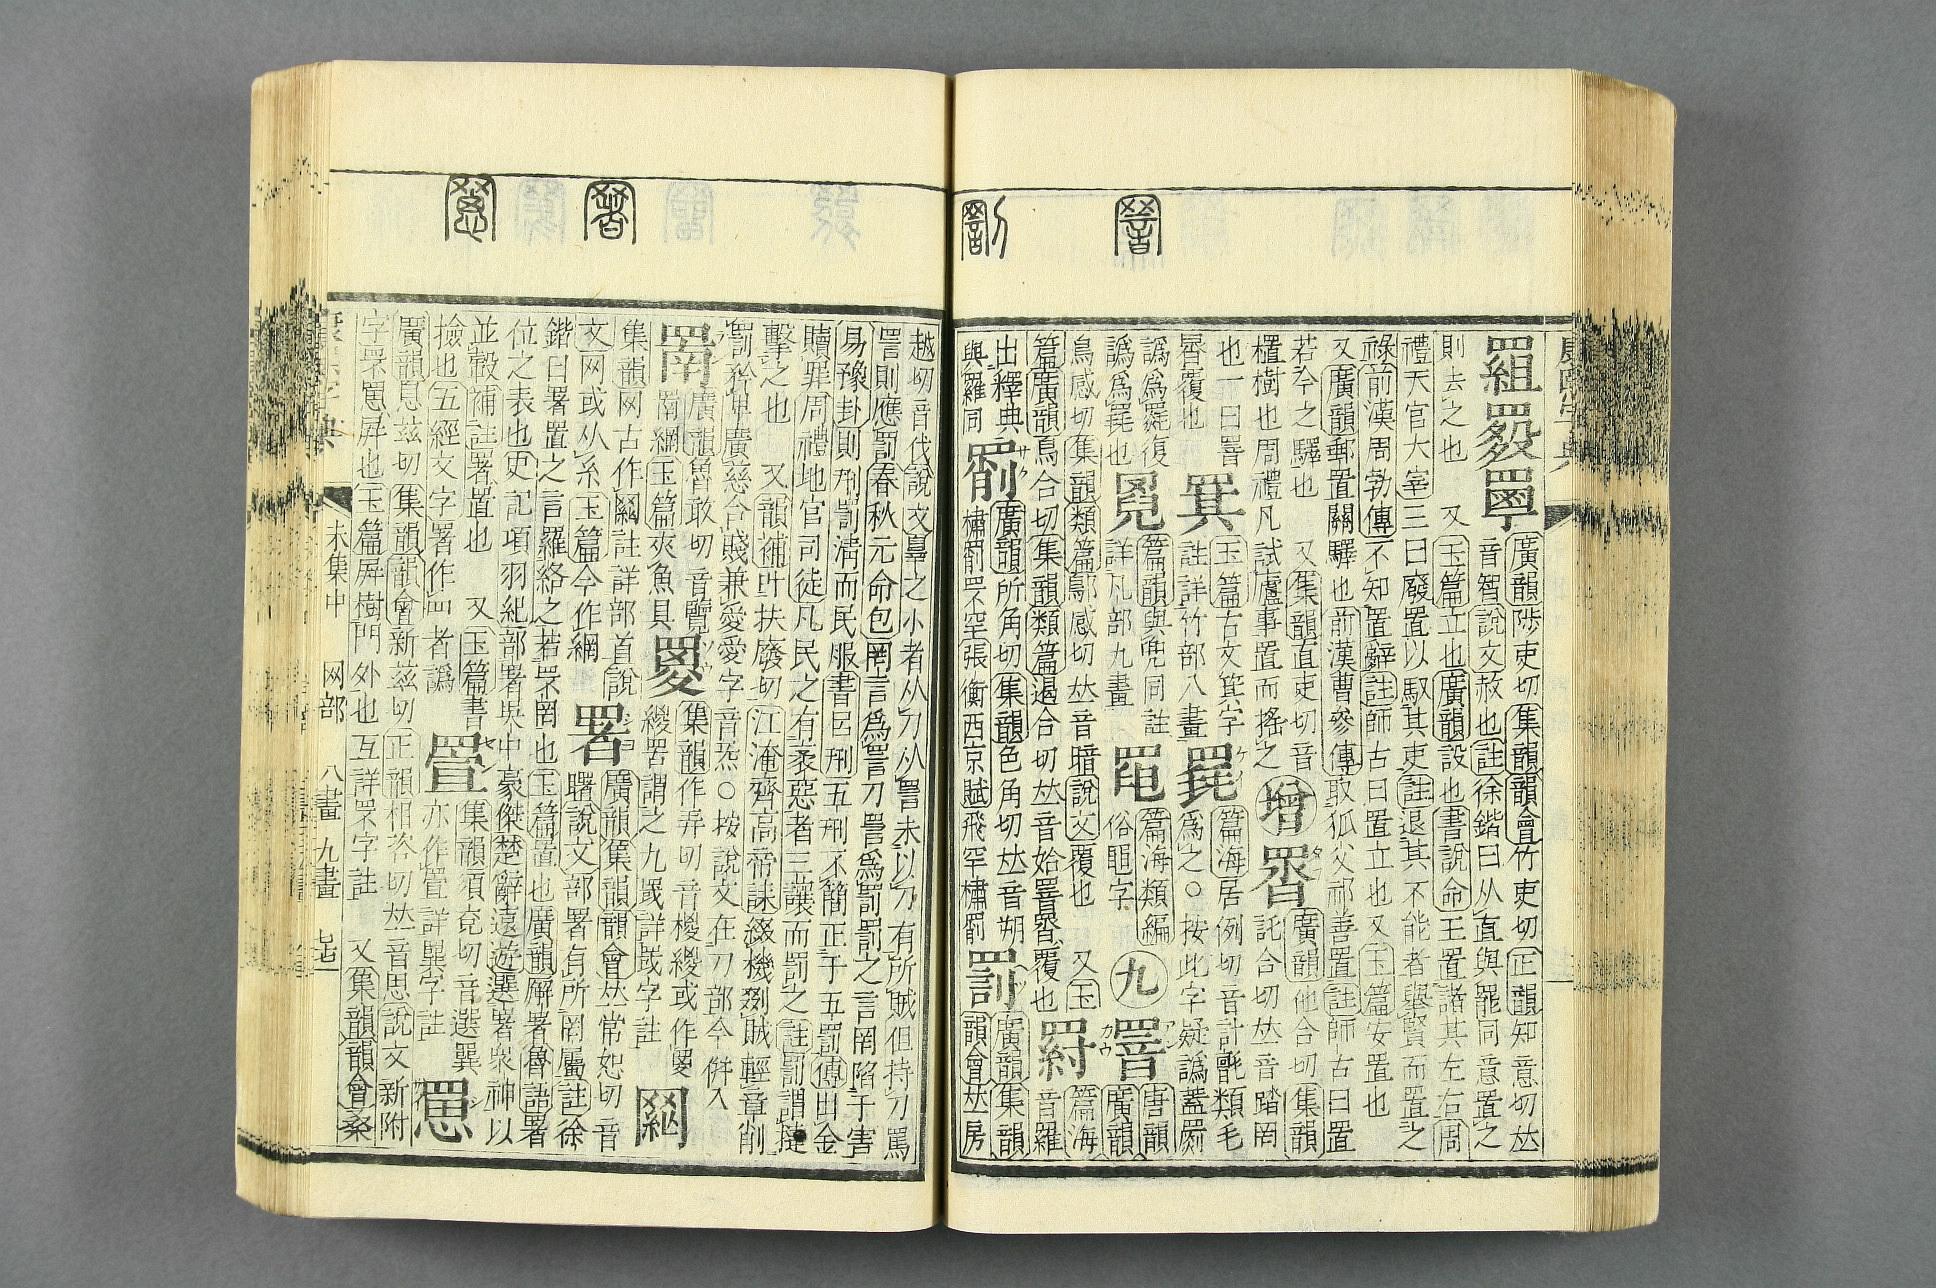 廣韻陟吏切集韻韻會竹吏切正韻知意切𠀤
音智說文赦也註徐鍇曰从直與罷同意置之
則去之也 又玉篇立也廣韻設也書說命王置諸其左右周
禮天官大宰三曰廢置以馭其吏註退其不能者舉賢而置之
祿前漢周勃傳不知置辭註師古曰置立也又玉篇安置也
又廣韻郵置關驛也前漢曹參傳取狐父祁善置註師古曰置
若今之驛也 又集韻直吏切音
植樹也周禮凡試廬事置而搖之
增
廣韻他合切集韻
託合切𠀤音踏罔
也一曰罯
覆也
玉篇古文箕字
註詳竹部八畫
篇海居例切音計氈類毛
爲之○按此字疑譌蓋罽
譌爲罷復
譌爲
篇韻與兜同註
詳凡部九畫
篇海類編
俗黽字
九
罯
唐韻
廣韻
烏感切集韻類篇鄔感切𠀤音暗說文覆也 又玉
篇廣韻烏合切集韻類篇遏合切𠀤音始罯 覆也
篇海
音羅
出釋典
與羅同
廣韻所角切集韻色角切𠀤音朔
橚 罘罕張衡西京賦飛罕橚
罰
廣韻集韻
韻會𠀤房
越切音伐說文辠之小者从刀从詈未以刀有所賊但持刀罵
詈則應罰春秋元命包罔言爲詈刀詈爲罰罰之言罔陷于害
易豫卦則刑罰淸而民服書呂刑五刑不簡正于五罰傳出金
贖罪周禮地官司徒凡民之有衺惡者三讓而罰之註罰謂撻
擊之也 又韻補叶扶廢切江淹齊高帝誄綴機剟賊輕章削
罰矜 廣慈合賤兼愛愛字音炁○按說文在刀部今併入
廣韻魯敢切音覽
罱網玉篇夾魚具
集韻作弄切音㯶緵或作
緵罟謂之九罭詳罭字註
集韻网古作 註詳部首說
文网或从糸玉篇今作網
署
廣韻集韻韻會𠀤常恕切音
曙說文部署有所罔屬註徐
鍇曰署置之言羅絡之若罘罔也玉篇置也廣韻廨署魯語署
位之表也史記項羽紀部署吳中豪傑楚辭遠遊選署衆神以
並轂補註署置也 又玉篇書
撿也五經文字署作 者譌
集韻須兗切音選罥
亦作 詳罥字註
罳
新附
廣韻息茲切集韻韻會新茲切正韻相咨切𠀤音思說文
字罘罳屛也玉篇屛樹門外也互詳罘字註 又集韻韻會桑
康熙字典
未集中 网部 八畫 九畫